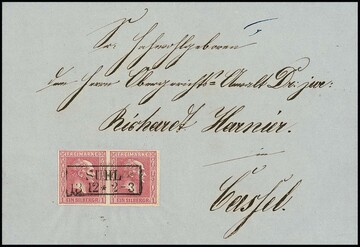 Sr. Hochwohlgeboren
dem Herrn Obergerichts-Anwalt Dr. jur.
Richard Harnier.
in
Cassel.
FREIMARKE FREIMARKE
SUHL
12 * 2-3
1 EIN SILBERGR. 1 1 EIN SILBERGR. 1